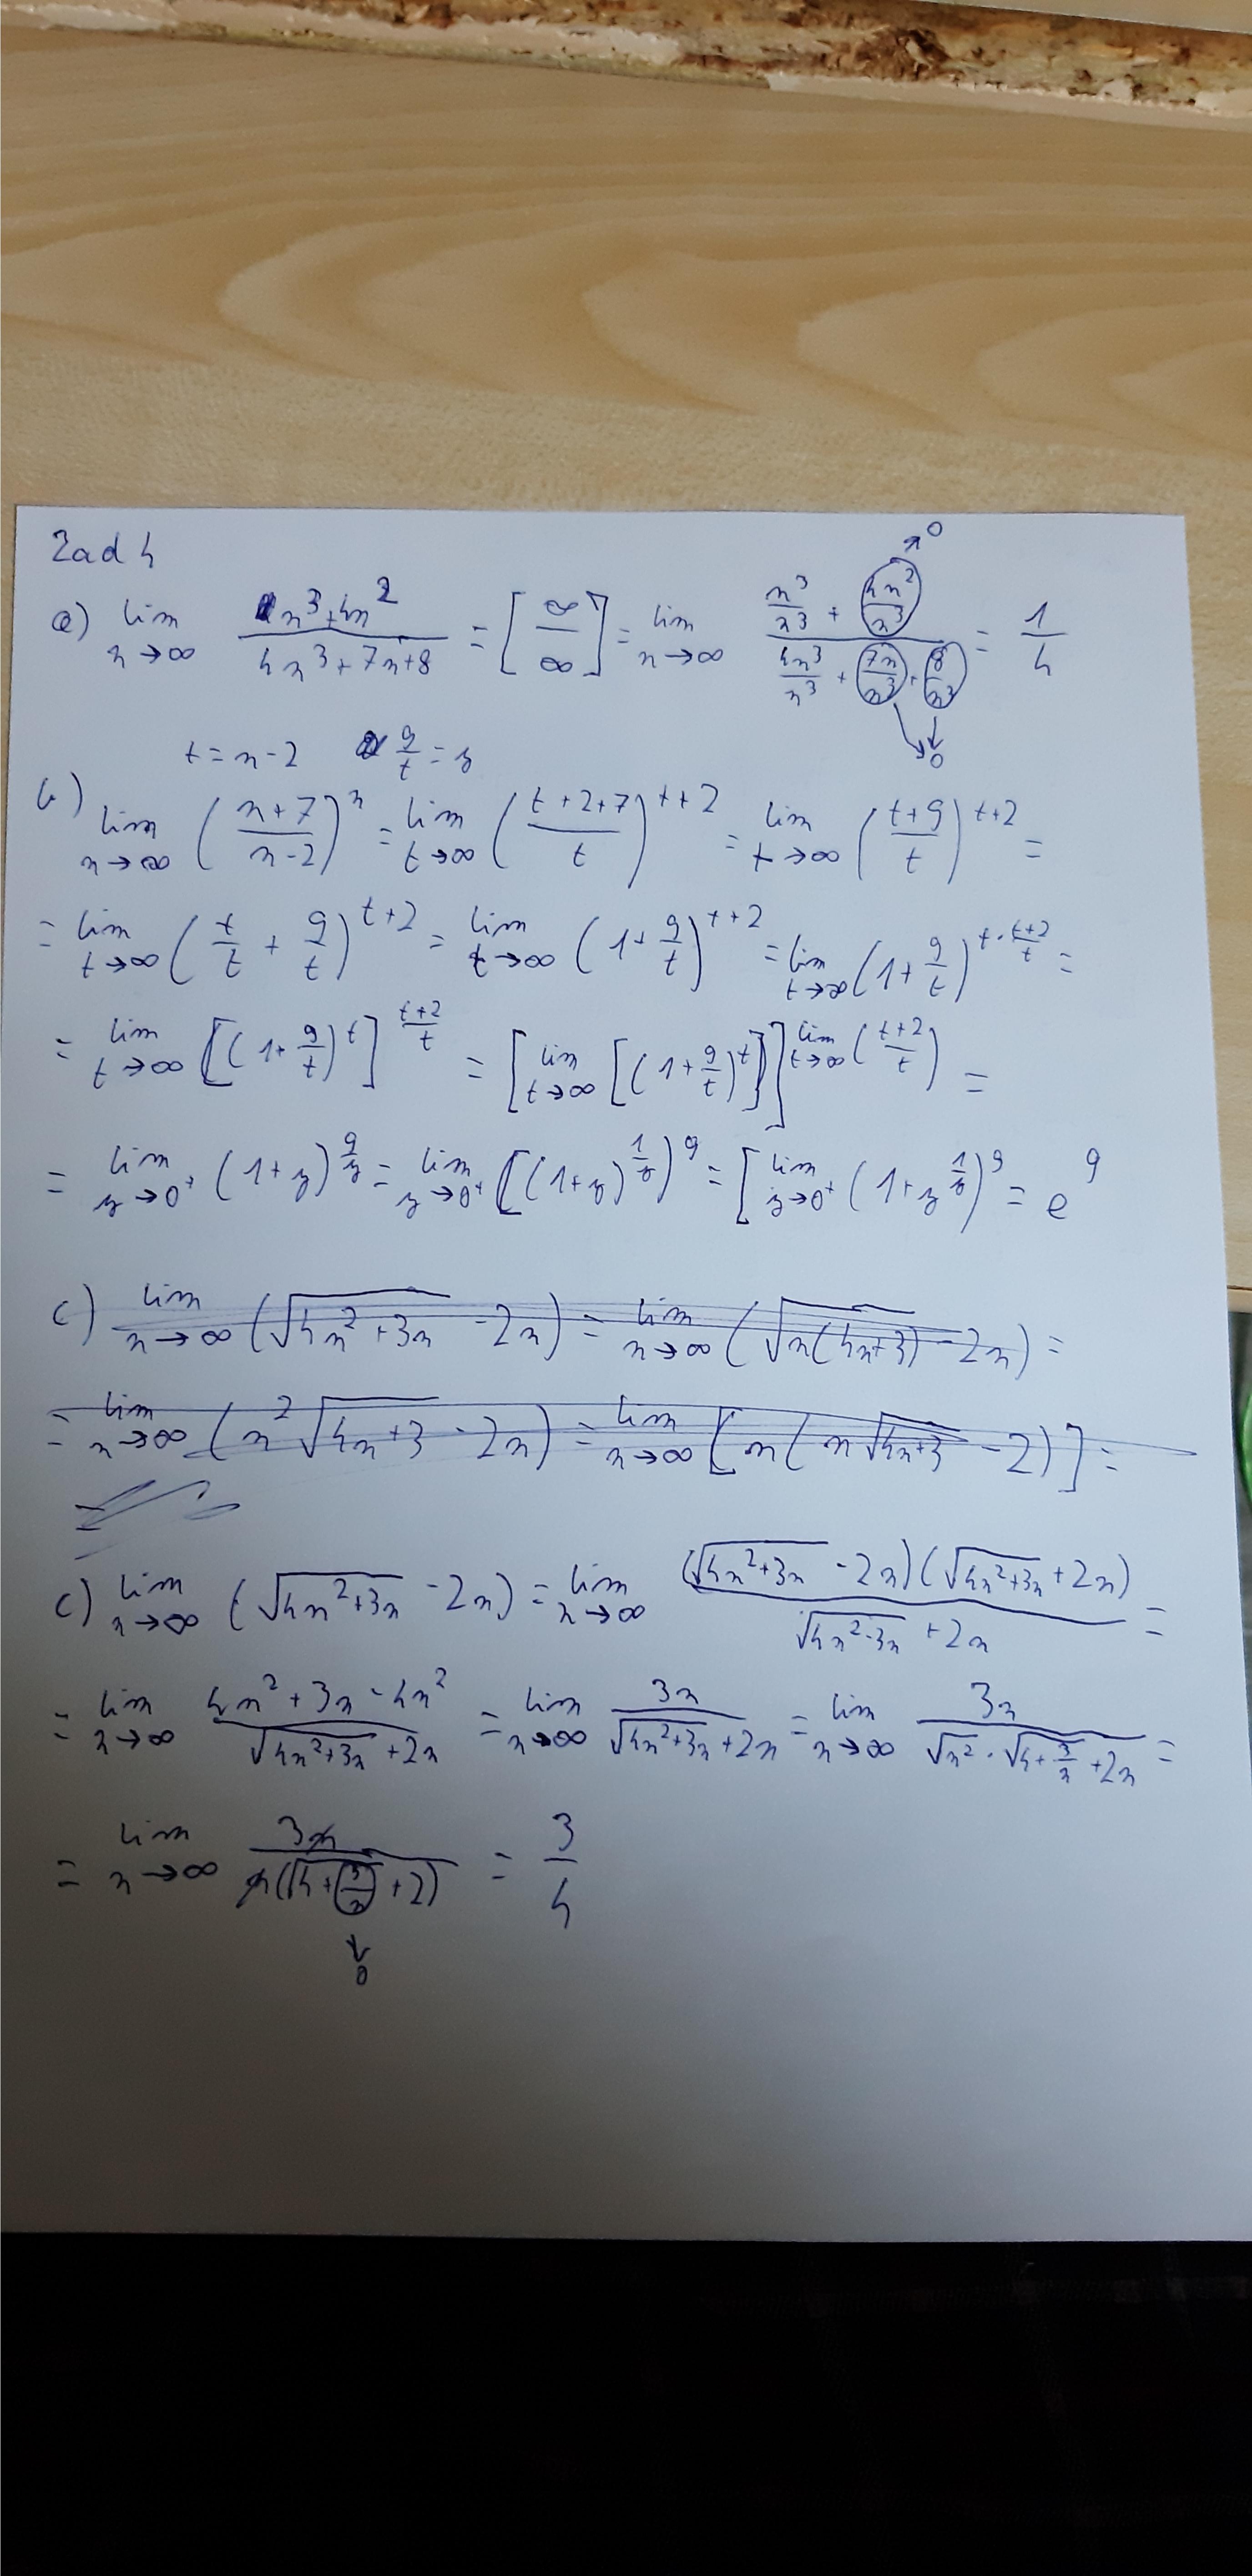 Zad 4
a) lim n→∞ (n³+4n²)/(4n³+7n+8) = [∞/∞] = lim n→∞ (n³/n³ + 4n²/n³)/(4n³/n³ + 7n/n³ + 8/n³) = 1/4
→0
↓0
t = n-2   9/t = y
b) lim n→∞ ((n+7)/(n-2))ⁿ = lim t→∞ ((t+2+7)/t)^(t+2) = lim t→∞ ((t+9)/t)^(t+2) =
= lim t→∞ (t/t + 9/t)^(t+2) = lim t→∞ (1+9/t)^(t+2) = lim t→∞ (1+9/t)^(t·(t+2)/t) =
= lim t→∞ [(1+9/t)^t]^((t+2)/t) = [lim t→∞ [(1+9/t)^t]]^(lim t→∞ ((t+2)/t)) =
= lim y→0⁺ (1+y)^(9/y) = lim y→0⁺ [(1+y)^(1/y))⁹ = [lim y→0⁺ (1+y^(1/y))⁹ = e⁹
c) lim n→∞ (√(4n²+3n) - 2n) = lim n→∞ (√(n(4n+3)) - 2n) =
= lim n→∞ (n²√(4n+3) - 2n) = lim n→∞ [n(n√(4n+3) - 2)] =
=
c) lim n→∞ (√(4n²+3n) - 2n) = lim n→∞ ((√(4n²+3n) - 2n)(√(4n²+3n) + 2n))/(√(4n²-3n) + 2n) =
= lim n→∞ (4n²+3n-4n²)/(√(4n²+3n) + 2n) = lim n→∞ 3n/(√(4n²+3n) + 2n) = lim n→∞ 3n/(√n² · √(4+3/n) + 2n) =
= lim n→∞ 3n/(n(√(4+3/n) + 2)) = 3/4
↓
0